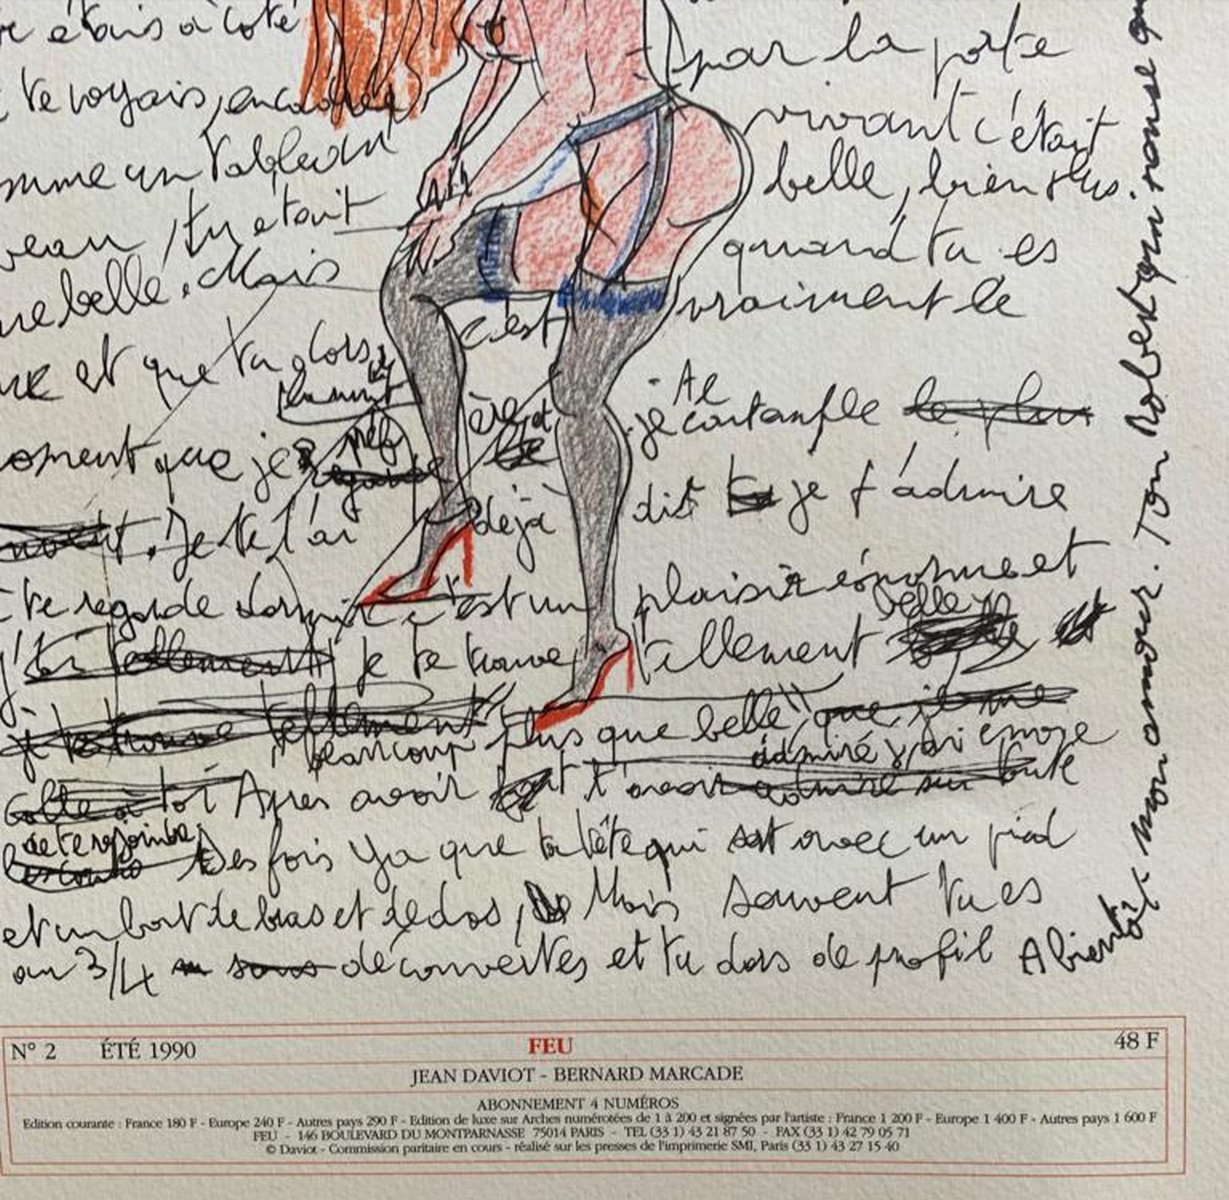 étais à côté
te voyais, encadrée par la porte
comme un tableau vivant c'était
beau, tu était belle, bien plus.
belle. Mais quand tu es
c'est vraiment le
et que tu dors,
la nuit
Al
moment que je préf ère et je contemple le plus
regarde le
Je te l'ai déjà dit je t'admire
te regarde dormir c'est un plaisir énorme et
tellement je te trouve tellement belle
je te trouve tellement beaucoup plus que belle", que je me
admiré j'ai envie
à toi Apres avoir t'avoir admiré sur toute
de te rejoindre
Des fois ya que ta tête qui avec un pied
et un bout de bras et de dos, Mais souvent tu es
au 3/4 sous découvertes et tu dors de profil A bientôt
mon amour. Ton Robert qui pense
N° 2 ÉTÉ 1990 FEU 48 F
JEAN DAVIOT - BERNARD MARCADE
ABONNEMENT 4 NUMÉROS
Edition courante : France 180 F - Europe 240 F - Autres pays 290 F - Edition de luxe sur Arches numérotées de 1 à 200 et signées par l'artiste : France 1 200 F - Europe 1 400 F - Autres pays 1 600 F
FEU - 146 BOULEVARD DU MONTPARNASSE 75014 PARIS - TEL (33 1) 43 21 87 50 - FAX (33 1) 42 79 05 71
© Daviot - Commission paritaire en cours - réalisé sur les presses de l'imprimerie SMI, Paris (33 1) 43 27 15 40